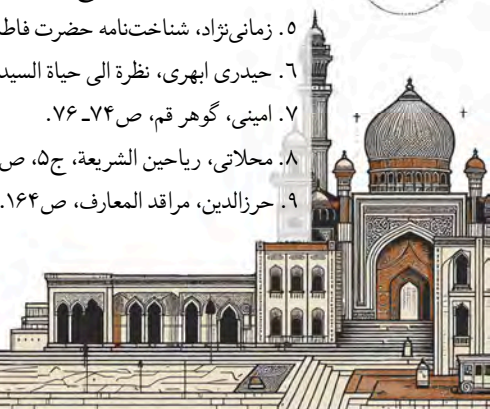 ۵. زمانی‌نژاد، شناخت‌نامه حضرت فاطم
۶. حیدری ابهری، نظرة الی حیاة السید
۷. امینی، گوهر قم، ص۷۴ـ ۷۶.
۸. محلاتی، ریاحین الشریعة، ج۵، ص
۹. حرزالدین، مراقد المعارف، ص۱۶۴.